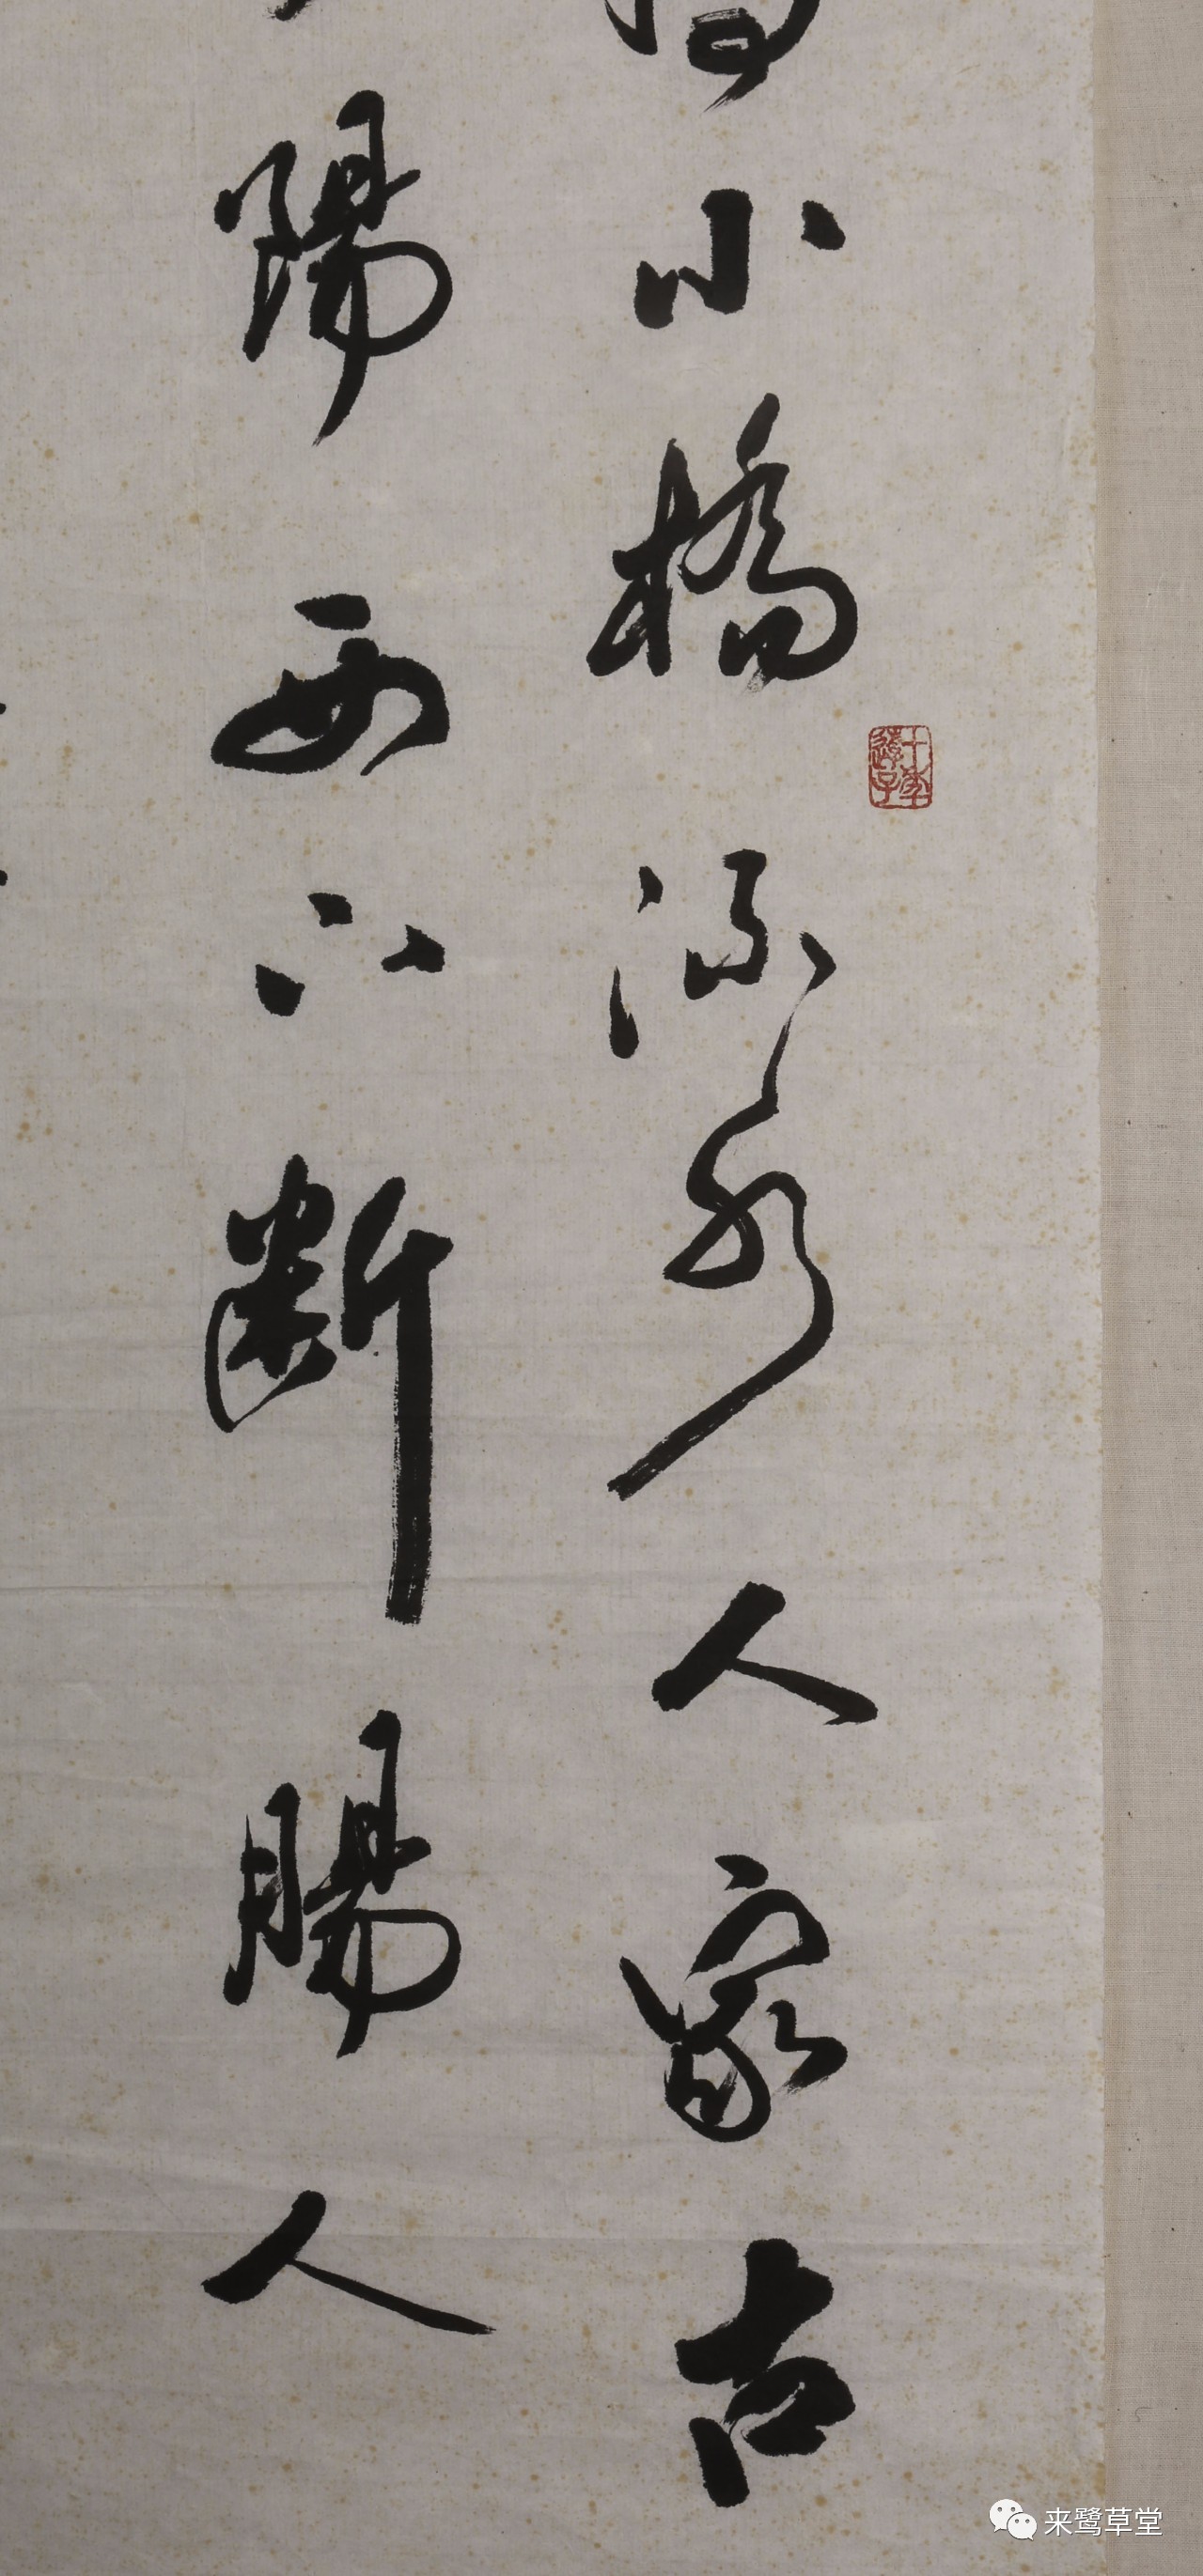 小橋流水人家古
陽西下斷腸人
来鹭草堂